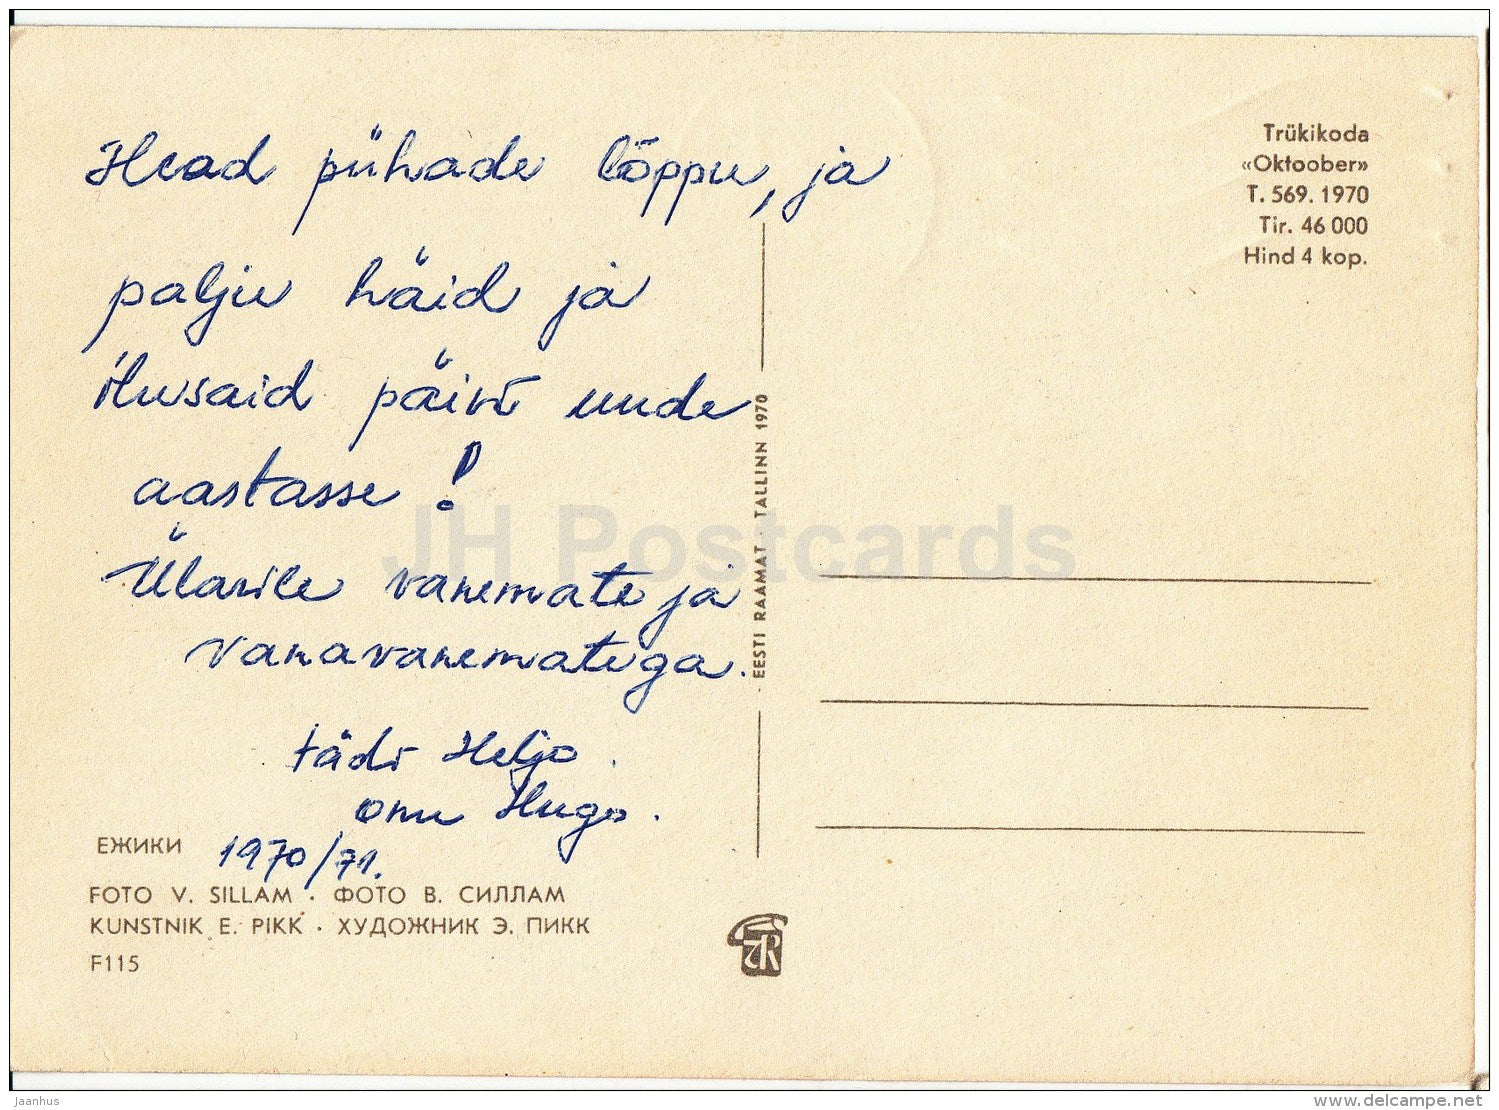 Head pühade lõppu, ja
palju häid ja
ilusaid päivi uude
aastasse!
Ülarile vanemate ja
vanavanematega.
tädi Heljo.
onu Hugo.
1970/71.
ЕЖИКИ
FOTO V. SILLAM · ФОТО В. СИЛЛАМ
KUNSTNIK E. PIKK · ХУДОЖНИК Э. ПИКК
F115
EESTI RAAMAT · TALLINN 1970
TR
Trükikoda
«Oktoober»
T. 569. 1970
Tir. 46 000
Hind 4 kop.
JH Postcards
Jaanhus
http://www.delcampe.net